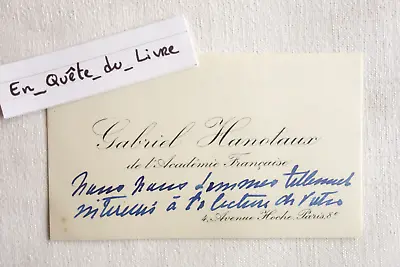 En_Quête_du_Livre
Gabriel Hanotaux
de l'Académie Française
nous nous sommes tellement
intéressés à la lecture de votre
4, Avenue Hoche, Paris, 8e